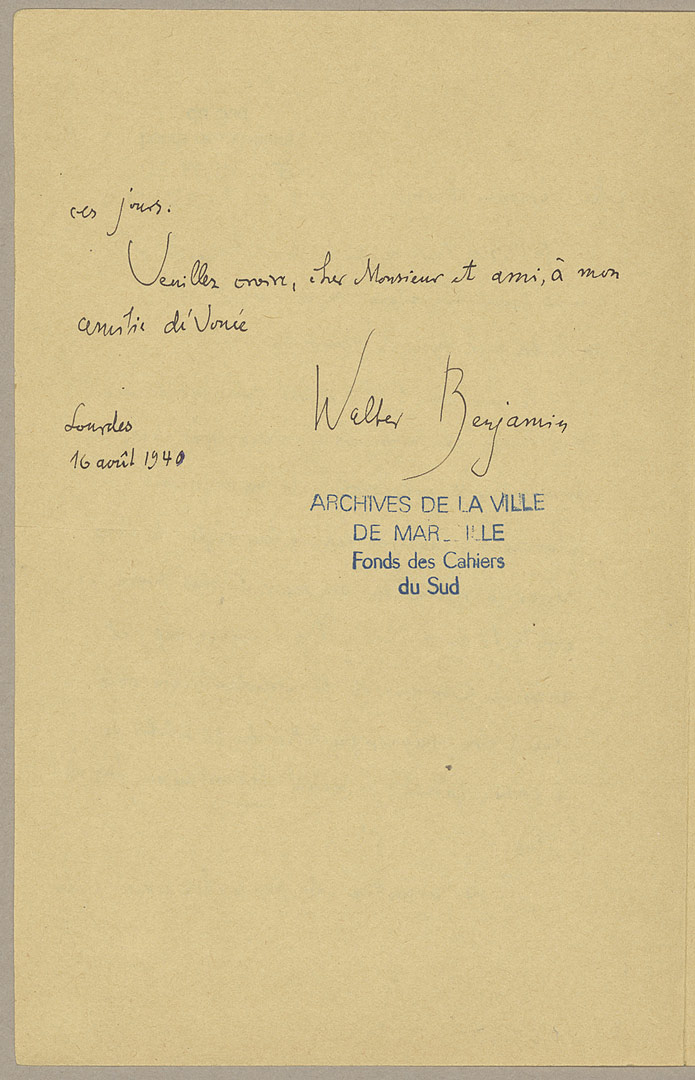 ces jours.
Veuillez croire, cher Monsieur et ami, à mon
amitié dévouée
Walter Benjamin
Lourdes
16 août 1940
ARCHIVES DE LA VILLE
DE MAR ILLE
Fonds des Cahiers
du Sud